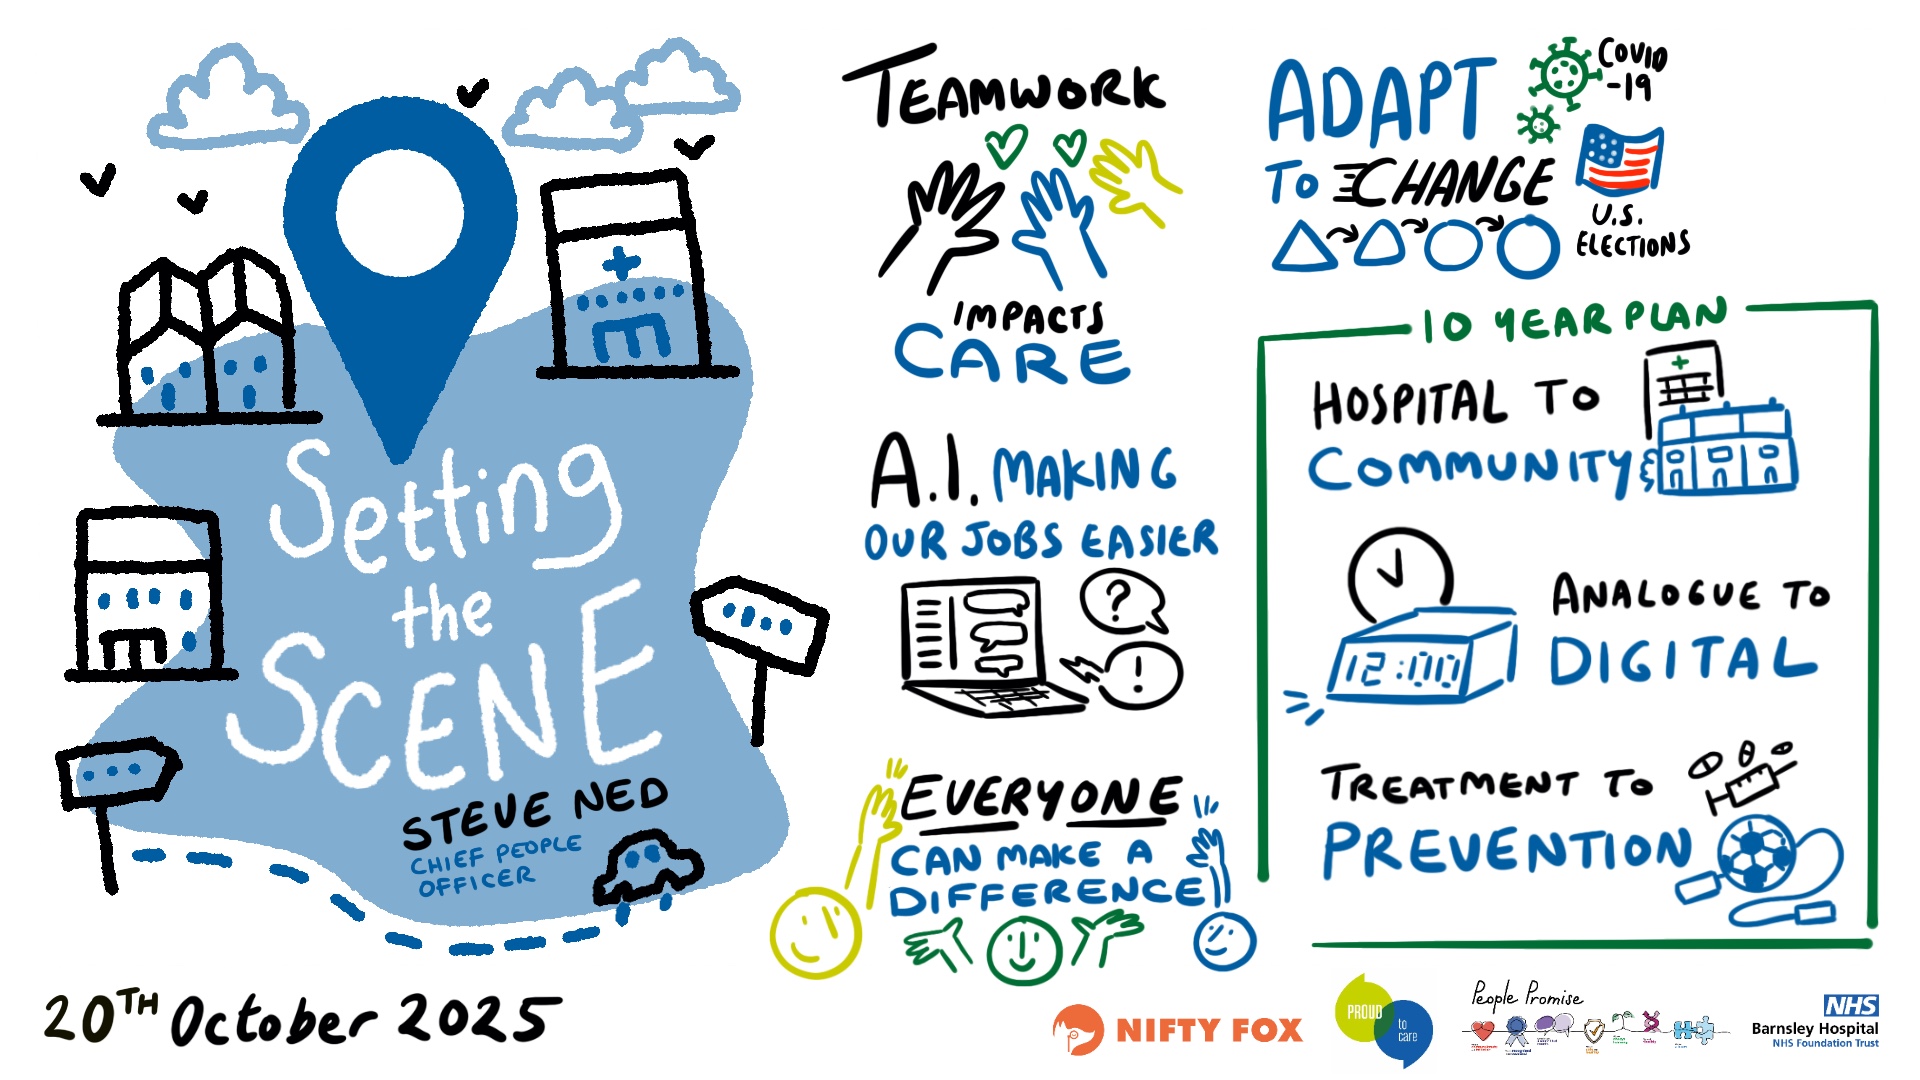 Setting
the
SCENE
STEVE NED
CHIEF PEOPLE
OFFICER
20TH October 2025
TEAMWORK
IMPACTS
CARE
A.I. MAKING
OUR JOBS EASIER
?
!
EVERYONE
CAN MAKE A
DIFFERENCE
ADAPT
TO CHANGE
COVID
-19
U.S.
ELECTIONS
10 YEAR PLAN
HOSPITAL TO
COMMUNITY
ANALOGUE TO
DIGITAL
12:00
TREATMENT TO
PREVENTION
NIFTY FOX
PROUD
to
care
People Promise
NHS
Barnsley Hospital
NHS Foundation Trust